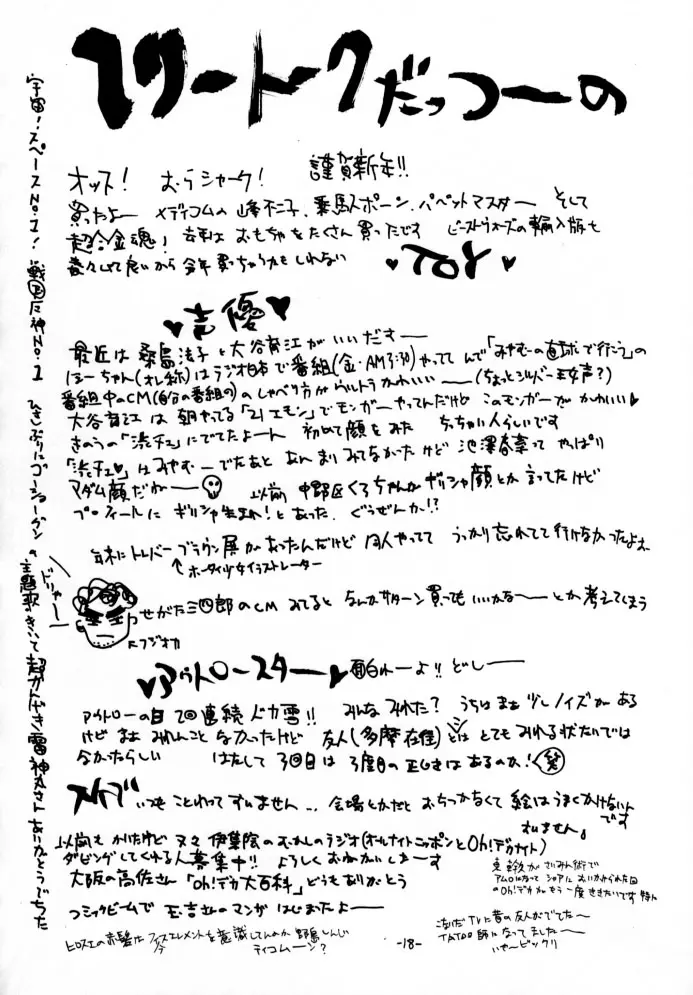 フリートークだっつーの
オッス！ むらシャーク！ 謹賀新年!!
買ったよー メディコムの峰不二子、乗馬スポーン、パペットマスター そして
超合金魂！ 去年は おもちゃをたくさん買ったです ビーストウォーズの輸入版も
着々として良いから 今年 買っちゃうかもしれない ♥TOY♥
♥声優♥
最近は 桑島法子と大谷育江がいいだすー
ほーちゃん(オレ称)はラジオ日本で番組(金・AM3:30)やってて んで「みやむーの直球で行こう」の
番組中のCM(自分の番組の)のしゃべり方がウルトラかわいいー (ちょっとシルバー王女声?)
大谷育江は 朝やってる「21エモン」でモンガーやってんだけど このモンガーがかわいい♥
きのうの「渋チェ」にでてたよーん 初めて顔をみた ちっちゃい人らしいです
「渋チェ♥」はみやむーでたあと あんまりみてなかったけど 池澤春菜って やっぱり
マダム顔だがー 以前 中野区くろちゃんが ギリシャ顔とか言ってたけど
プロフィールに ギリシャ生まれ!とあった、ぐうぜんか!?
年末にトレバー・ブラウン展があったんだけど 同人やってて うっかり忘れてて行けなかったよお
↑ホータイ少女イラストレーター
ドリャー
せがた三四郎のCM みてると なんかサターン買っても いいかなーとか考えてしまう
F.フジオカ
♥アウトロースター♥ 面白れーよ!! どしー
アウトローの日 2回連続ドカ雪!! みんなみれた? うちはまだ少しノイズがある
けど まだ みれんことなかったけど 友人(多摩在住)とは とてもみれる状たいでは
なかったらしい はたして 3回目は 3度目の正じきはあるのか!(笑)
スケブ いつも ことわってすいません… 会場とかだと おちつかなくて 絵はうまくかけないんです
すいません。
以前も かいたけど 又々 伊集院のむかしのラジオ(オールナイトニッポンとOh!デカナイト)
ダビングしてくれる人募集中!! よろしく おねがいしまーす
大阪の高佐さん「Oh!デカ大百科」どうもありがとう
東幹久がさいみん術で
アムロになって シャアに おいかけられた回
のOh!デカがもう一度ききたいです 特に
コミックビームで 玉吉さんのマンガ はじまったよー
ヒロスエの赤髪は フィフスエレメントを意識してんのか 野島しんじ
ティコムーン？
こないだ TVに昔の友人がでてたー
TATOO師になってましたー
いやービックリ
-18-
宇宙！スペースNo.1！ 戦国魔神No.1 ひさしぶりにゴーショーグンの主題歌をきいて 超かんげき 雷神丸さん ありがとうでちた